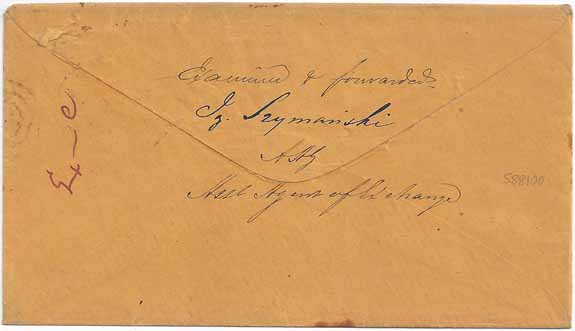 Examined & forwarded
Ig. Szymański
AAG
Asst Agent of Exchange
Ex—c
S88100